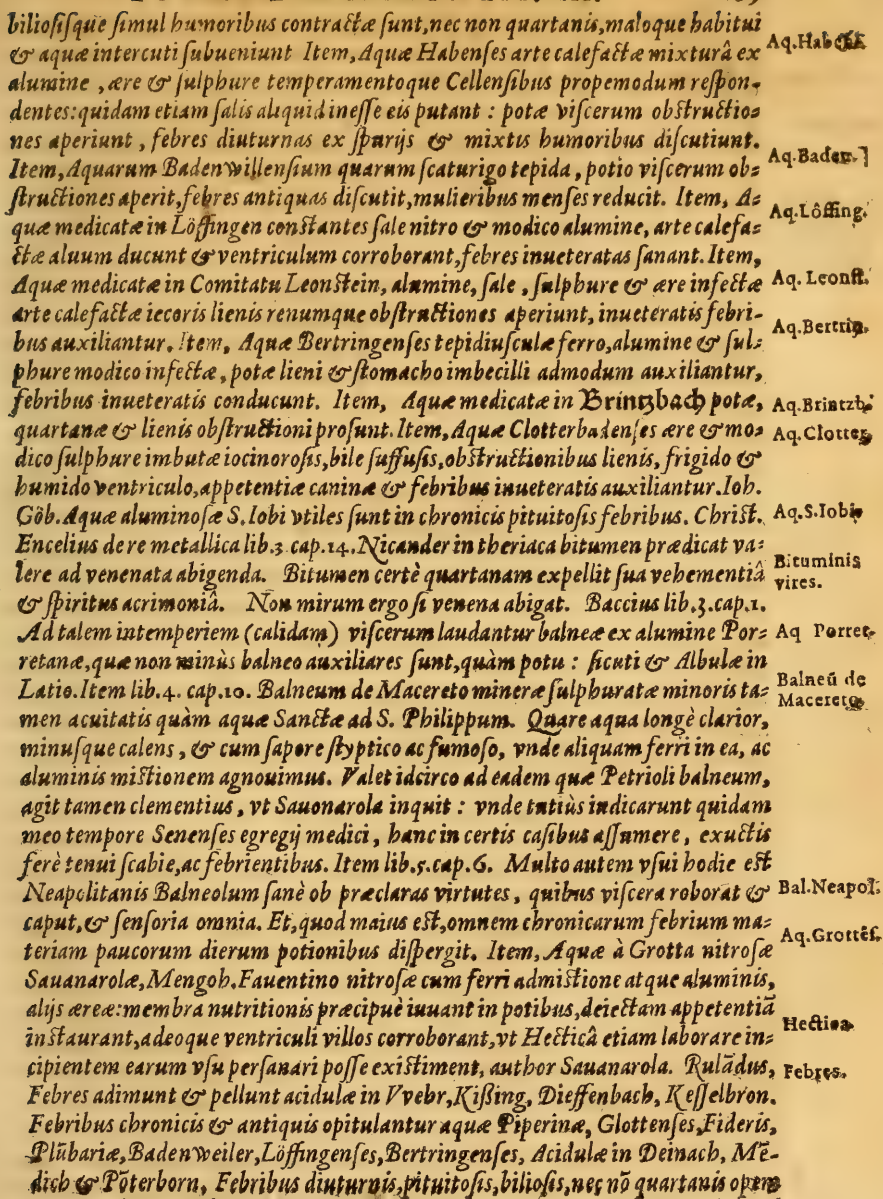 biliosisque simul humoribus contractæ sunt, nec non quartanis, maloque habitui
& aquæ intercuti subueniunt Item, Aquæ Habenses arte calefactæ mixturâ ex
Aq.Habens.
alumine, ære & sulphure temperamentoque Cellensibus propemodum respon-
dentes: quidam etiam salis aliquid inesse eis putant : potæ viscerum obstructio=
nes aperiunt, febres diuturnas ex spurijs & mixtis humoribus discutiunt.
Item, Aquarum Badenwillensium quarum scaturigo tepida, potio viscerum ob=
Aq.Baden.
structiones aperit, febres antiquas discutit, mulieribus menses reducit. Item, A=
quæ medicatæ in Löffingen constantes sale nitro & modico alumine, arte calefa=
Aq.Lôffing.
ctæ aluum ducunt & ventriculum corroborant, febres inueteratas sanant. Item,
Aquæ medicatæ in Comitatu Leonstein, alumine, sale, sulphure & ære infectæ
Aq. Leonst.
arte calefactæ iecoris lienis renumque obstructiones aperiunt, inueteratis febri-
bus auxiliantur. Item, Aquæ Bertringenses tepidiusculæ ferro, alumine & sul=
Aq.Bertrin.
phure modico infectæ, potæ lieni & stomacho imbecilli admodum auxiliantur,
febribus inueteratis conducunt. Item, Aquæ medicatæ in Brintzbach potæ,
Aq.Brintzb.
quartanæ & lienis obstructioni prosunt. Item, Aquæ Clotterbadenses ære & mo=
Aq.Clotter.
dico sulphure imbutæ iocinorosis, bile suffusis, obstructionibus lienis, frigido &
humido ventriculo, appetentiæ caninæ & febribus inueteratis auxiliantur. Ioh.
Göb. Aquæ aluminosæ S. Iobi vtiles sunt in chronicis pituitosis febribus. Christ.
Aq.S.Iobi.
Encelius de re metallica lib.3 cap.14. Nicander in theriaca bitumen prædicat va=
lere ad venenata abigenda. Bitumen certè quartanam expellit sua vehementiâ
Bituminis
vires.
& spiritus acrimoniâ. Non mirum ergo si venena abigat. Baccius lib.3.cap.1.
Ad talem intemperiem (calidam) viscerum laudantur balneæ ex alumine Por=
Aq Porret.
retanæ, quæ non minùs balneo auxiliares sunt, quàm potu : sicuti & Albulæ in
Latio. Item lib.4. cap.10. Balneum de Macereto mineræ sulphuratæ minoris ta=
Balneũ de
Macereto.
men acuitatis quàm aquæ Sanctæ ad S. Philippum. Quare aqua longè clarior,
minusque calens, & cum sapore styptico ac fumoso, vnde aliquam ferri in ea, ac
aluminis mistionem agnouimus. Valet idcirco ad eadem quæ Petrioli balneum,
agit tamen clementius, vt Sauonarola inquit : vnde tutiùs indicarunt quidam
meo tempore Senenses egregij medici, hanc in certis casibus assumere, exuctis
ferè tenui scabie, ac febrientibus. Item lib.5.cap.6. Multo autem vsui hodie est
Neapolitanis Balneolum sanè ob præclaras virtutes, quibus viscera roborat &
Bal.Neapol.
caput, & sensoria omnia. Et, quod maius est, omnem chronicarum febrium ma=
teriam paucorum dierum potionibus dispergit. Item, Aquæ à Grotta nitrosæ
Aq.Grottês.
Sauanarolæ, Mengoh. Fauentino nitrosæ cum ferri admistione atque aluminis,
alijs æreæ: membra nutritionis præcipuè iuuant in potibus, deiectam appetentiã
instaurant, adeoque ventriculi villos corroborant, vt Hecticâ etiam laborare in=
Hectica.
cipientem earum vsu persanari posse existiment, author Sauanarola. Rulãdus,
Febres.
Febres adimunt & pellunt acidulæ in Vvebr, Kißing, Dieffenbach, Kesselbron.
Febribus chronicis & antiquis opitulantur aquæ Piperinæ, Glottenses, Fideris,
Plũbariæ, Badenweiler, Löffingenses, Bertringenses, Acidulæ in Deinach, Mẽ-
dich & Põterborn, Febribus diuturnis, pituitosis, biliosis, nec nõ quartanis opem